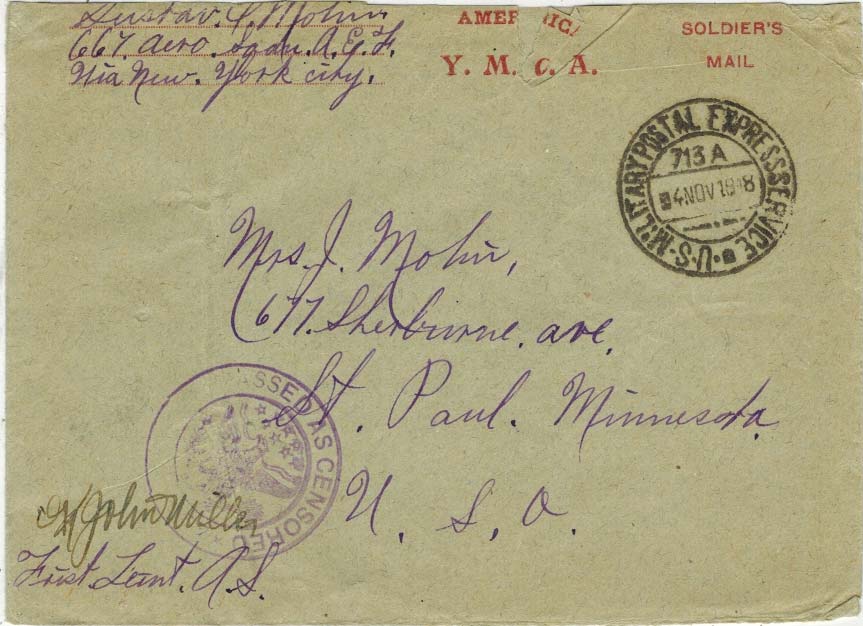 Gustav. P. Mohn
667. Aero. Sqdn. A. E. F.
Via New. York city.
AMER
Y. M. C. A.
SOLDIER'S
MAIL
U.S. MILITARY POSTAL EXPRESS SERVICE
713 A
4 NOV 1918
Mrs. J. Mohn,
677. Sherburne. ave.
St. Paul. Minnesota.
U. S. A.
PASSED AS CENSORED
John Miller
First Leut. A. S.